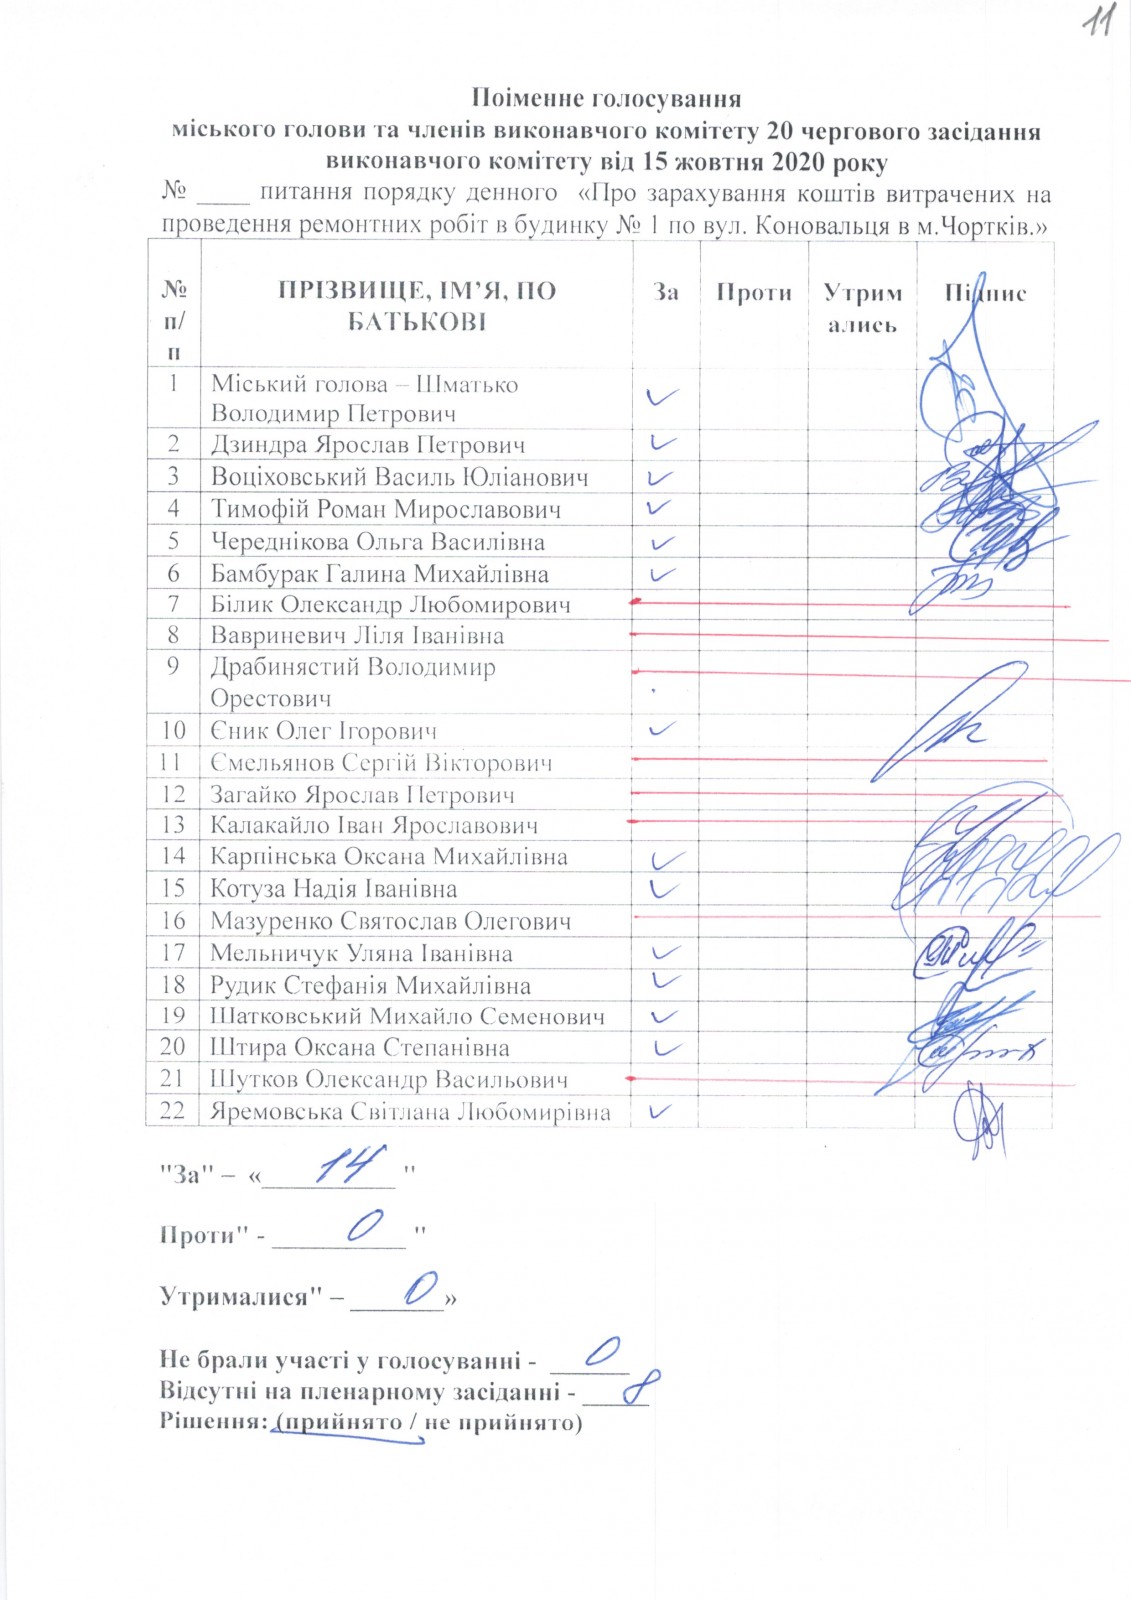 11
Поіменне голосування
міського голови та членів виконавчого комітету 20 чергового засідання
виконавчого комітету від 15 жовтня 2020 року
№ ____ питання порядку денного «Про зарахування коштів витрачених на
проведення ремонтних робіт в будинку № 1 по вул. Коновальця в м.Чортків.»
№ п/п ПРІЗВИЩЕ, ІМ’Я, ПО БАТЬКОВІ За Проти Утримались Підпис
1 Міський голова – Шматько
Володимир Петрович ✓
2 Дзиндра Ярослав Петрович ✓
3 Воціховський Василь Юліанович ✓
4 Тимофій Роман Мирославович ✓
5 Череднікова Ольга Василівна ✓
6 Бамбурак Галина Михайлівна ✓
7 Білик Олександр Любомирович
8 Вавриневич Ліля Іванівна
9 Драбинястий Володимир
Орестович
10 Єник Олег Ігорович ✓
11 Ємельянов Сергій Вікторович
12 Загайко Ярослав Петрович
13 Калакайло Іван Ярославович
14 Карпінська Оксана Михайлівна ✓
15 Котуза Надія Іванівна ✓
16 Мазуренко Святослав Олегович
17 Мельничук Уляна Іванівна ✓
18 Рудик Стефанія Михайлівна ✓
19 Шатковський Михайло Семенович ✓
20 Штира Оксана Степанівна ✓
21 Шутков Олександр Васильович
22 Яремовська Світлана Любомирівна ✓
"За" – « 14 "
Проти" - 0 "
Утрималися" – 0 »
Не брали участі у голосуванні - 0
Відсутні на пленарному засіданні - 8
Рішення: (прийнято / не прийнято)